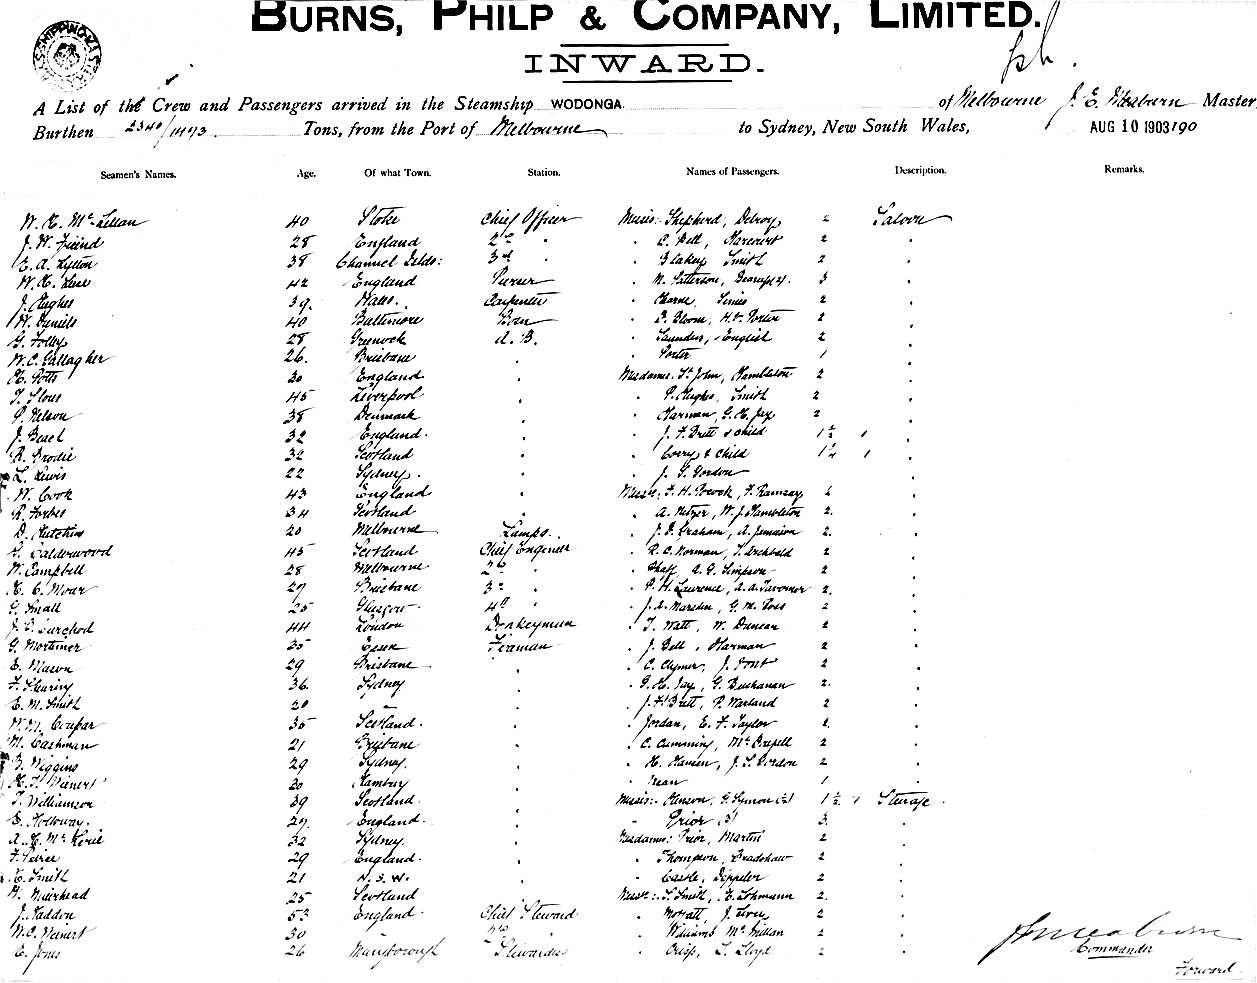 BURNS, PHILP & COMPANY, LIMITED.
INWARD.
A List of the Crew and Passengers arrived in the Steamship WODONGA of Melbourne J. E. Meaburn Master,
Burthen 2340/ Tons, from the Port of Melbourne to Sydney, New South Wales, AUG 10 1903 190
Seamen's Names. Age. Of what Town. Station. Names of Passengers. Description. Remarks.
W. H. McLellan 40 Stoke Chief Officer Misses: Shepherd, Delroy 2 Saloon
J. W. Friend 28 England 2nd " Bell, Harcourt 2
E. A. Lytton 38 Channel Islds: 3rd " Blakey Smith 2
W. H. 42 England Purser " N. Patterson, 3
J. Hughes 39. Carpenter " 2
W. Daniels 40 Baltimore Bosn " D. Bloom, Porter 2
G. Foley 28 Greenock A.B. " Saunders, English 2
W. C. Gallagher 26. Brisbane " Porter 1
H. Potts 30 England Mesdames: St. John, Hambleton 2
45 Liverpool " P. Hughes, Smith 2
P. Nelson 38 Denmark " Harman, G. H. Jay 2
J. Beach 32 England. " J. F. Brett & child 1 ½
R. Brodie 32 Scotland " Corry & Child 1 ½
L. Lewis 22 Sydney. " J. S. Gordon
W. Cook 43 England Messrs: F. H. Pocock, F. Ramsay 2
R. Forbes 34 Scotland " A. W. J. Hambleton 2
D. Hutchins 20 Melbourne Lamps. " Graham, A. Jamieson 2.
Calderwood 45 Scotland Chief Engineer " R. C. Norman, T. Archbald 2
W. Campbell 28 Melbourne 2nd " Simpson 2
H. C. Moar 27 Brisbane 3rd " P. H. Laurence, A. A. Taverner 2.
G. Small 25 Glasgow 4th " J. A. Marsden, G. M. Ross 2
44 London Donkeyman " T. Watt, W. Duncan 2
G. Mortimer 35 Essex Fireman " J. Bell, Harman 2
E. Mason 29 Brisbane " C. Clymer, J. 2
F. Fleuriny 36. Sydney " G. H. Jay, G. Buchanan 2.
E. M. Smith 20 " " J. F. Brett, P. Warland 2
W. M. Coupar 35 Scotland. " Jordan, E. F. Taylor 2.
M. Cashman 21 Brisbane " C. Cumming, 2
Wiggins 29 Sydney. " H. Hansen, J. S. Gordon 2
H. F. Weinert 30 Hamburg " 1
T. Williamson 39 Scotland. Misses: G. Symon 1 ½ Steerage
E. Holloway. 27. England. " Prior (3) 3.
32 Sydney. Mesdames: Prior, Martin 2
29 England. " Thompson, Bradshaw 2
E. Smith 21 N.S.W. " Castle, Deppeler 2
H. Muirhead 25 Scotland Messrs: S. Smith, E. Lohmann 2
J. Haddon 53 England. Chief Steward " Moffatt, J. 2
W. C. Weinert 30 2nd " Williams McMillan 2
E. Jones 26 Maryborough Stewardess " Crisp, L. Lloyd 2
J E Meaburn
Commander
Forward.